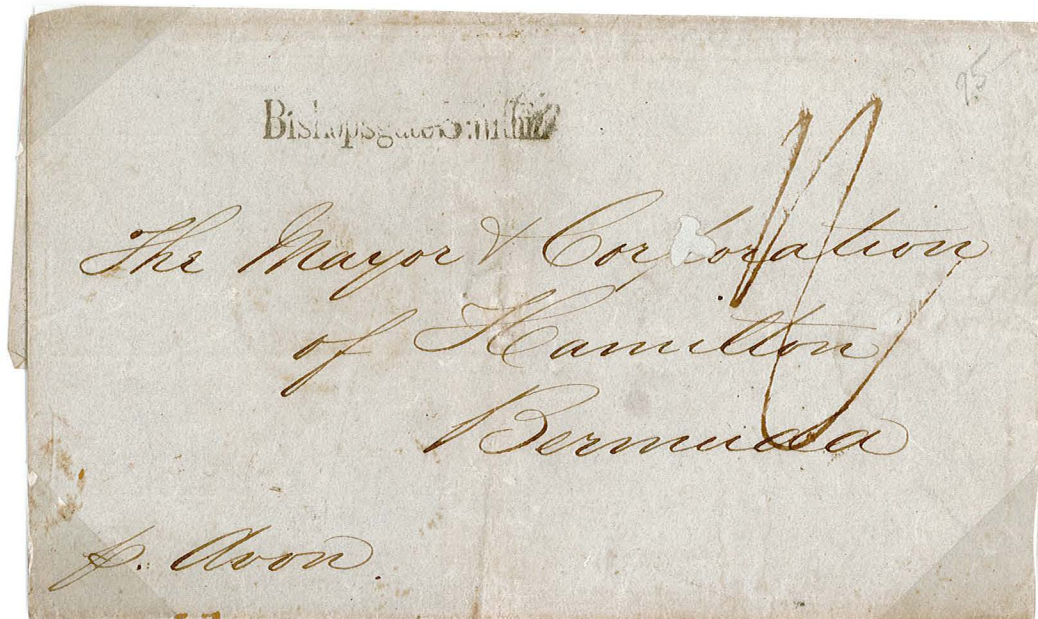 95
Bishopsgate S. within
The Mayor & Corporation
of Hamilton
Bermuda
p. Avon.